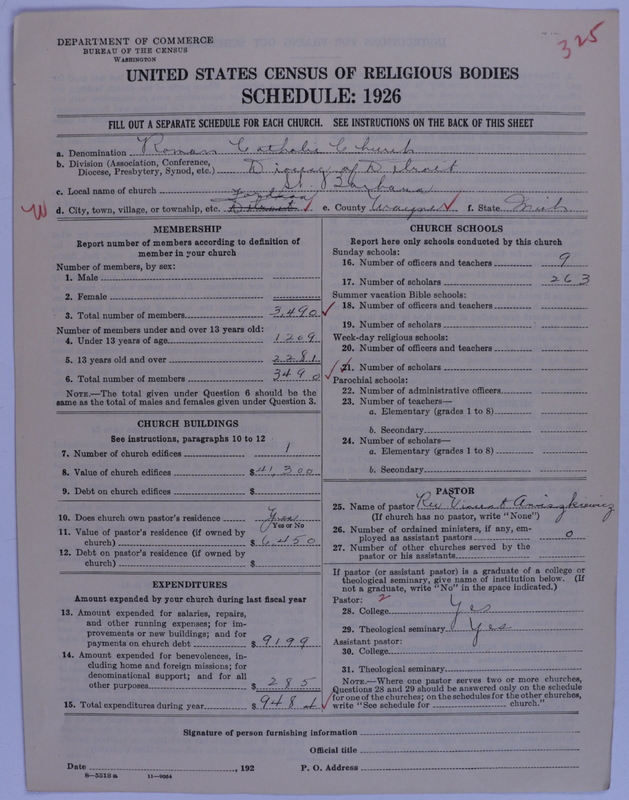 325
DEPARTMENT OF COMMERCE
BUREAU OF THE CENSUS
WASHINGTON
UNITED STATES CENSUS OF RELIGIOUS BODIES
SCHEDULE: 1926
FILL OUT A SEPARATE SCHEDULE FOR EACH CHURCH. SEE INSTRUCTIONS ON THE BACK OF THIS SHEET
a. Denomination Roman Catholic Church
b. Division (Association, Conference, Diocese, Presbytery, Synod, etc.) Diocese of Detroit
c. Local name of church St. Barbara
W d. City, town, village, or township, etc. Detroit e. County Wayne f. State Mich
MEMBERSHIP
Report number of members according to definition of
member in your church
Number of members, by sex:
1. Male
2. Female
3. Total number of members 3,490
Number of members under and over 13 years old:
4. Under 13 years of age 1209
5. 13 years old and over 2281
6. Total number of members 3490
NOTE.—The total given under Question 6 should be
same as the total of males and females given under Question 3.
CHURCH BUILDINGS
See instructions, paragraphs 10 to 12
7. Number of church edifices 1
8. Value of church edifices $41,300
9. Debt on church edifices $
10. Does church own pastor's residence
Yes or No
11. Value of pastor's residence (if owned by
church) $6450
12. Debt on pastor's residence (if owned by
church) $
EXPENDITURES
Amount expended by your church during last fiscal year
13. Amount expended for salaries, repairs,
and other running expenses; for im-
provements or new buildings; and for
payments on church debt $9199
14. Amount expended for benevolences, in-
cluding home and foreign missions; for
denominational support; and for all
other purposes $285
15. Total expenditures during year $9484
CHURCH SCHOOLS
Report here only schools conducted by this church
Sunday schools:
16. Number of officers and teachers 9
17. Number of scholars 263
Summer vacation Bible schools:
18. Number of officers and teachers
19. Number of scholars
Week-day religious schools:
20. Number of officers and teachers
21. Number of scholars
Parochial schools:
22. Number of administrative officers
23. Number of teachers—
a. Elementary (grades 1 to 8)
b. Secondary
24. Number of scholars—
a. Elementary (grades 1 to 8)
b. Secondary
PASTOR
25. Name of pastor Rev Vincent
(If church has no pastor, write "None")
26. Number of ordained ministers, if any, em-
ployed as assistant pastors 0
27. Number of other churches served by the
pastor or his assistants
If pastor (or assistant pastor) is a graduate of a college or
theological seminary, give name of institution below. (If
not a graduate, write "No" in the space indicated.)
Pastor: 2
28. College Yes
29. Theological seminary Yes
Assistant pastor:
30. College
31. Theological seminary
NOTE.—Where one pastor serves two or more churches,
Questions 28 and 29 should be answered only on the schedule
for one of the churches; on the schedules for the other churches,
write "See schedule for church."
Signature of person furnishing information
Official title
Date , 192 P. O. Address
8-5318 a 11-9064